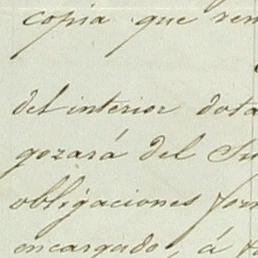 copia que rem
del interior dota
gozará del Su
obligaciones for
encargado, á